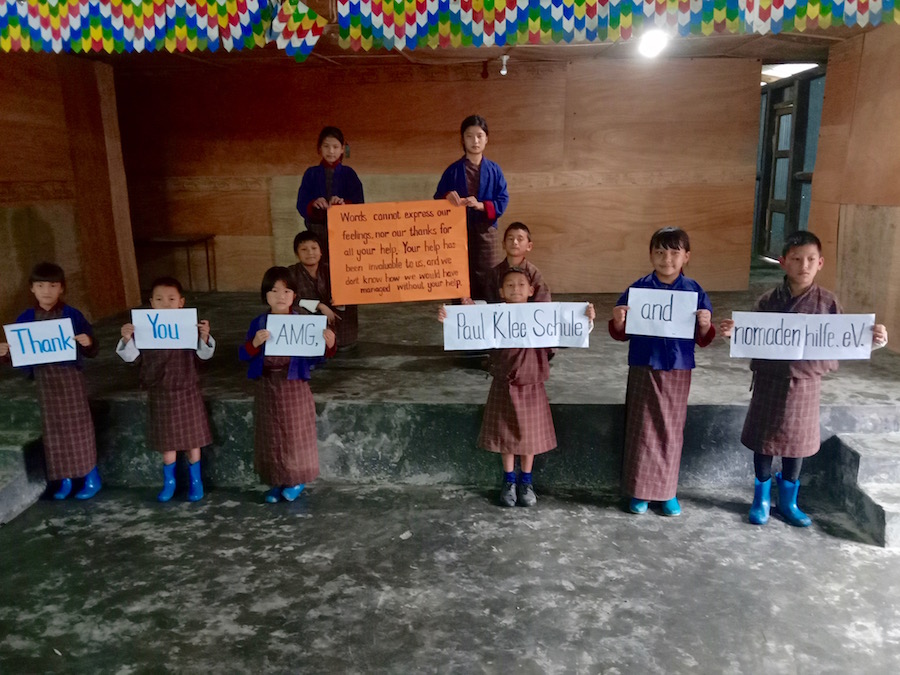 Words cannot express our
feelings, nor our thanks for
all your help. Your help has
been invaluable to us, and we
dont know how we would have
managed without your help.
Thank
You
AMG,
Paul Klee Schule
and
nomaden hilfe.eV.